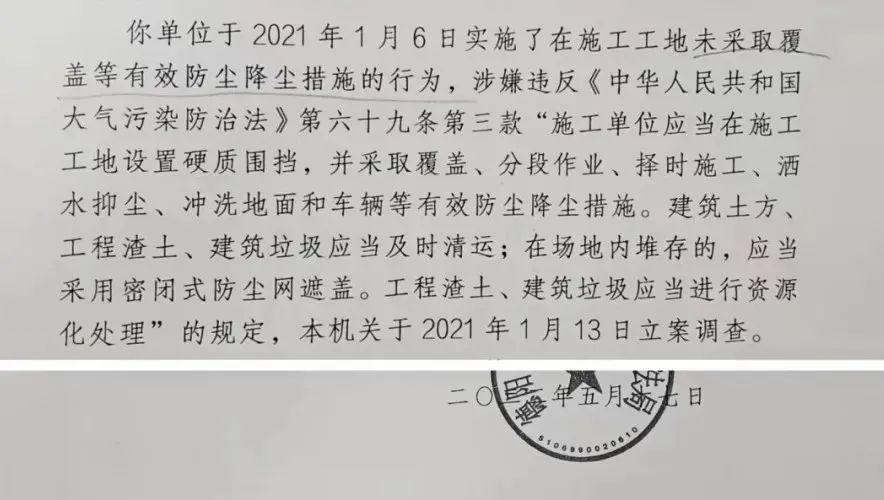 你单位于 2021 年 1 月 6 日实施了在施工工地未采取覆
盖等有效防尘降尘措施的行为，涉嫌违反《中华人民共和国
大气污染防治法》第六十九条第三款“施工单位应当在施工
工地设置硬质围挡，并采取覆盖、分段作业、择时施工、洒
水抑尘、冲洗地面和车辆等有效防尘降尘措施。建筑土方、
工程渣土、建筑垃圾应当及时清运；在场地内堆存的，应当
采用密闭式防尘网遮盖。工程渣土、建筑垃圾应当进行资源
化处理”的规定，本机关于 2021 年 1 月 13 日立案调查。
二〇 年五月 七日
德阳 法局
5106990020610